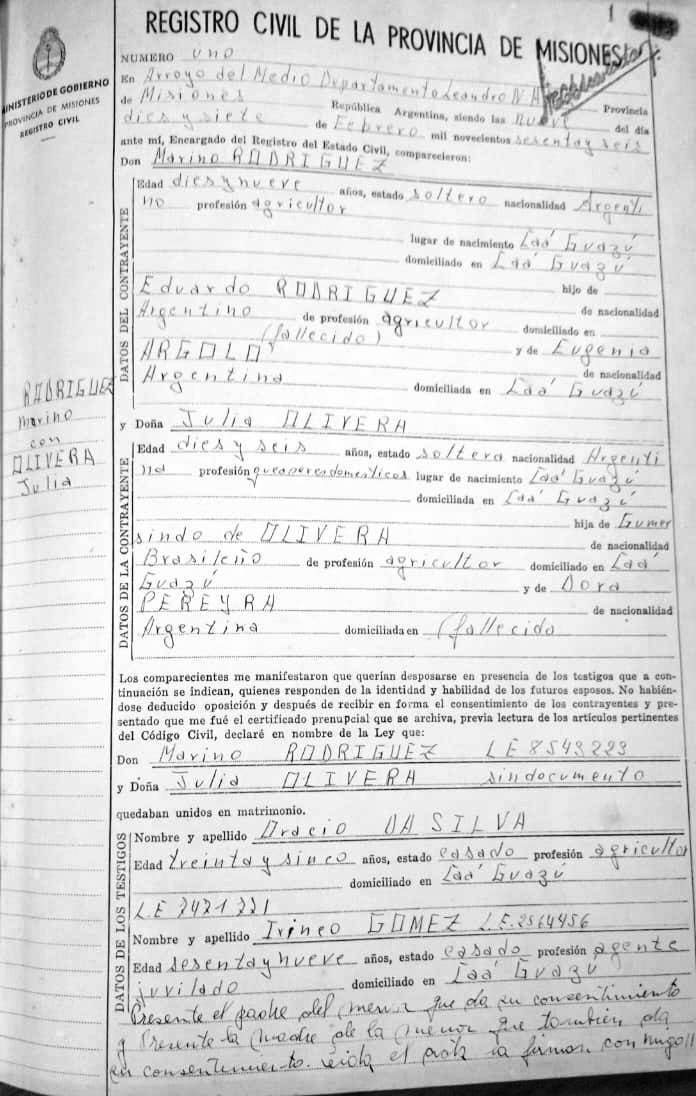 1
REGISTRO CIVIL DE LA PROVINCIA DE MISIONES
MINISTERIO DE GOBIERNO
PROVINCIA DE MISIONES
REGISTRO CIVIL
NUMERO uno
En Arroyo del Medio Departamento Leandro N A
de Misiones República Argentina, siendo las nueve Provincia
dies y siete de Febrero mil novecientos sesenta y seis del día
ante mí, Encargado del Registro del Estado Civil, comparecieron:
Don Marino RODRIGUEZ
DATOS DEL CONTRAYENTE
Edad dies y nueve años, estado soltero nacionalidad Argenti
no profesión agricultor
lugar de nacimiento Caá Guazú
domiciliado en Caá Guazú
hijo de
Eduardo RODRIGUEZ de nacionalidad
Argentino de profesión agricultor domiciliado en
(fallecido) y de Eugenia
ARGOLO de nacionalidad
Argentina domiciliada en Caá Guazú
RODRIGUEZ
Marino
con
OLIVERA
Julia
y Doña Julia OLIVERA
DATOS DE LA CONTRAYENTE
Edad dies y seis años, estado soltera nacionalidad Argenti
na profesión queaceresdomesticos lugar de nacimiento Caá Guazú
domiciliada en Caá Guazú
hija de Gumer
sindo de OLIVERA de nacionalidad
Brasileño de profesión agricultor domiciliado en Caá
Guazú y de Dora
PEREYRA de nacionalidad
Argentina domiciliada en (fallecido
Los comparecientes me manifestaron que querían desposarse en presencia de los testigos que a con-
tinuación se indican, quienes responden de la identidad y habilidad de los futuros esposos. No habién-
dose deducido oposición y después de recibir en forma el consentimiento de los contrayentes y pre-
sentado que me fué el certificado prenupcial que se archiva, previa lectura de los artículos pertinentes
del Código Civil, declaré en nombre de la Ley que:
Don Marino RODRIGUEZ LE 8543223
y Doña Julia OLIVERA sindocumento
quedaban unidos en matrimonio.
DATOS DE LOS TESTIGOS
Nombre y apellido Oracio DA SILVA
Edad treinta y sinco años, estado casado profesión agricultor
domiciliado en Caá Guazú
LE 7471771
Nombre y apellido Irineo GOMEZ LE.2564456
Edad sesenta y nueve años, estado casado profesión agente
juvilado domiciliado en Caá Guazú
Presente el padre del menor que da su consentimiento
y Presente la madre de la menor que tambien da
su consentimiento. leida el acta la firman conmigo //